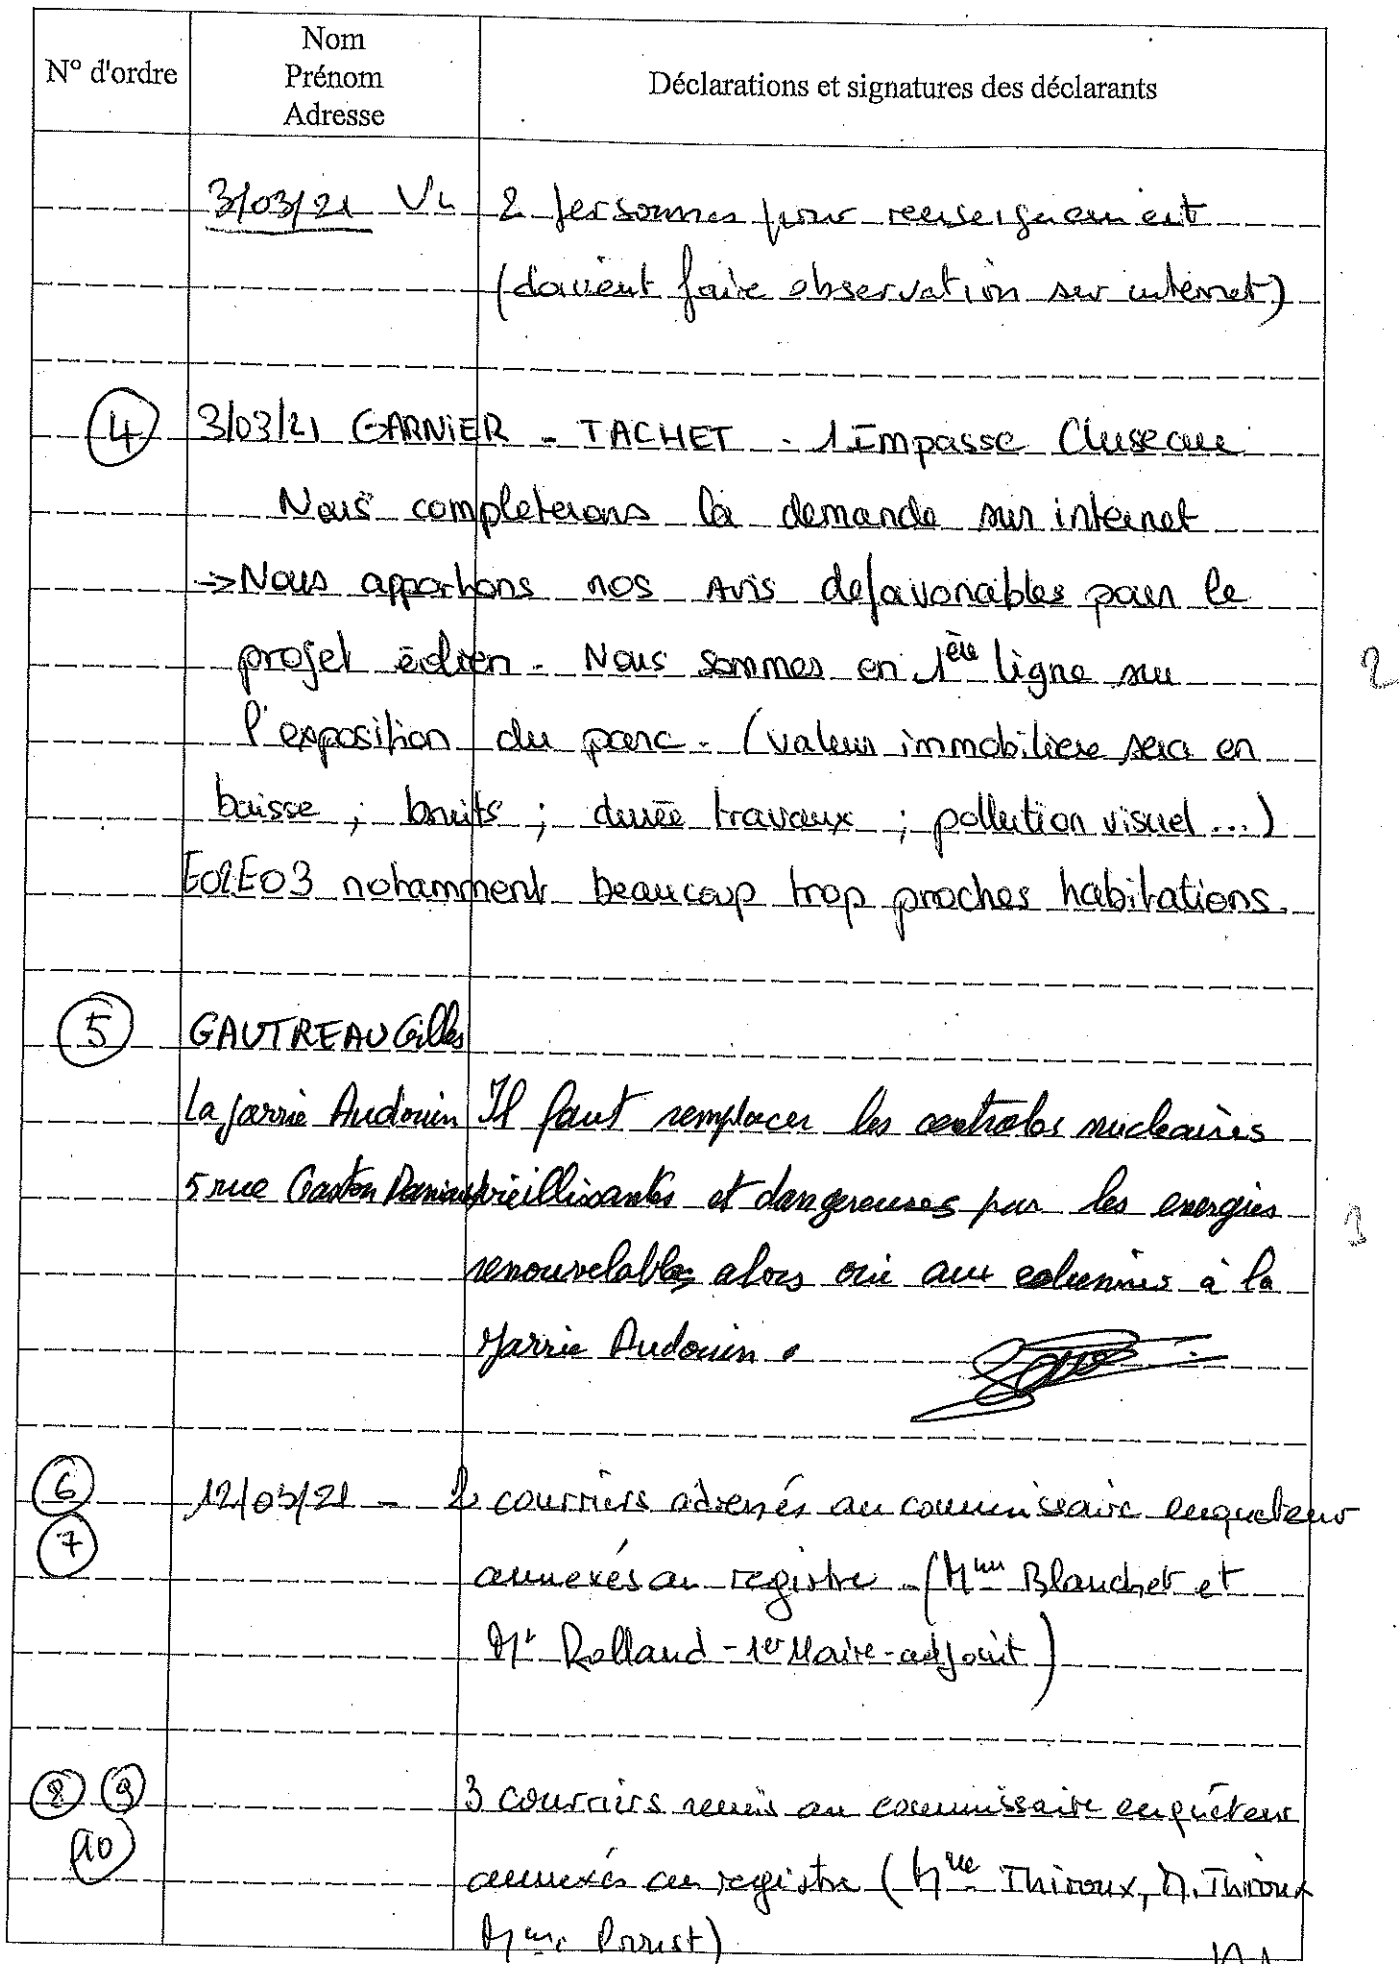 N° d'ordre
Nom
Prénom
Adresse
Déclarations et signatures des déclarants
3/03/21 2 personnes pour renseignement
(doivent faire observation sur internet)
4 3/03/21 GARNIER - TACHET - 1 Impasse Cluseau
Nous completerons la demande sur internet
-> Nous apportons nos avis defavorables pour le
projet éolien. Nous sommes en 1ère ligne sur
2
l'exposition du parc. (valeur immobiliere sera en
baisse ; bruits ; durée travaux ; pollution visuel ...)
E02 E03 notamment beaucoup trop proches habitations.
5 GAUTREAU Gilles
La Jarrie Audouin Il faut remplacer les centrales nucléaires
5 rue Gaston vieillissantes et dangereuses par les energies
3
renouvelables alors oui aux eoliennes à la
Jarrie Audouin.
6 12/03/21 - 2 courriers adressés au commissaire enqueteur
7
annexés au registre - (Mme Blanchet et
Mr Rolland - 1er Maire-adjoint)
8 9 3 courriers remis au commissaire enquêteur
10
annexés au registre (Mlle Thiroux, M. Thiroux
Mme)